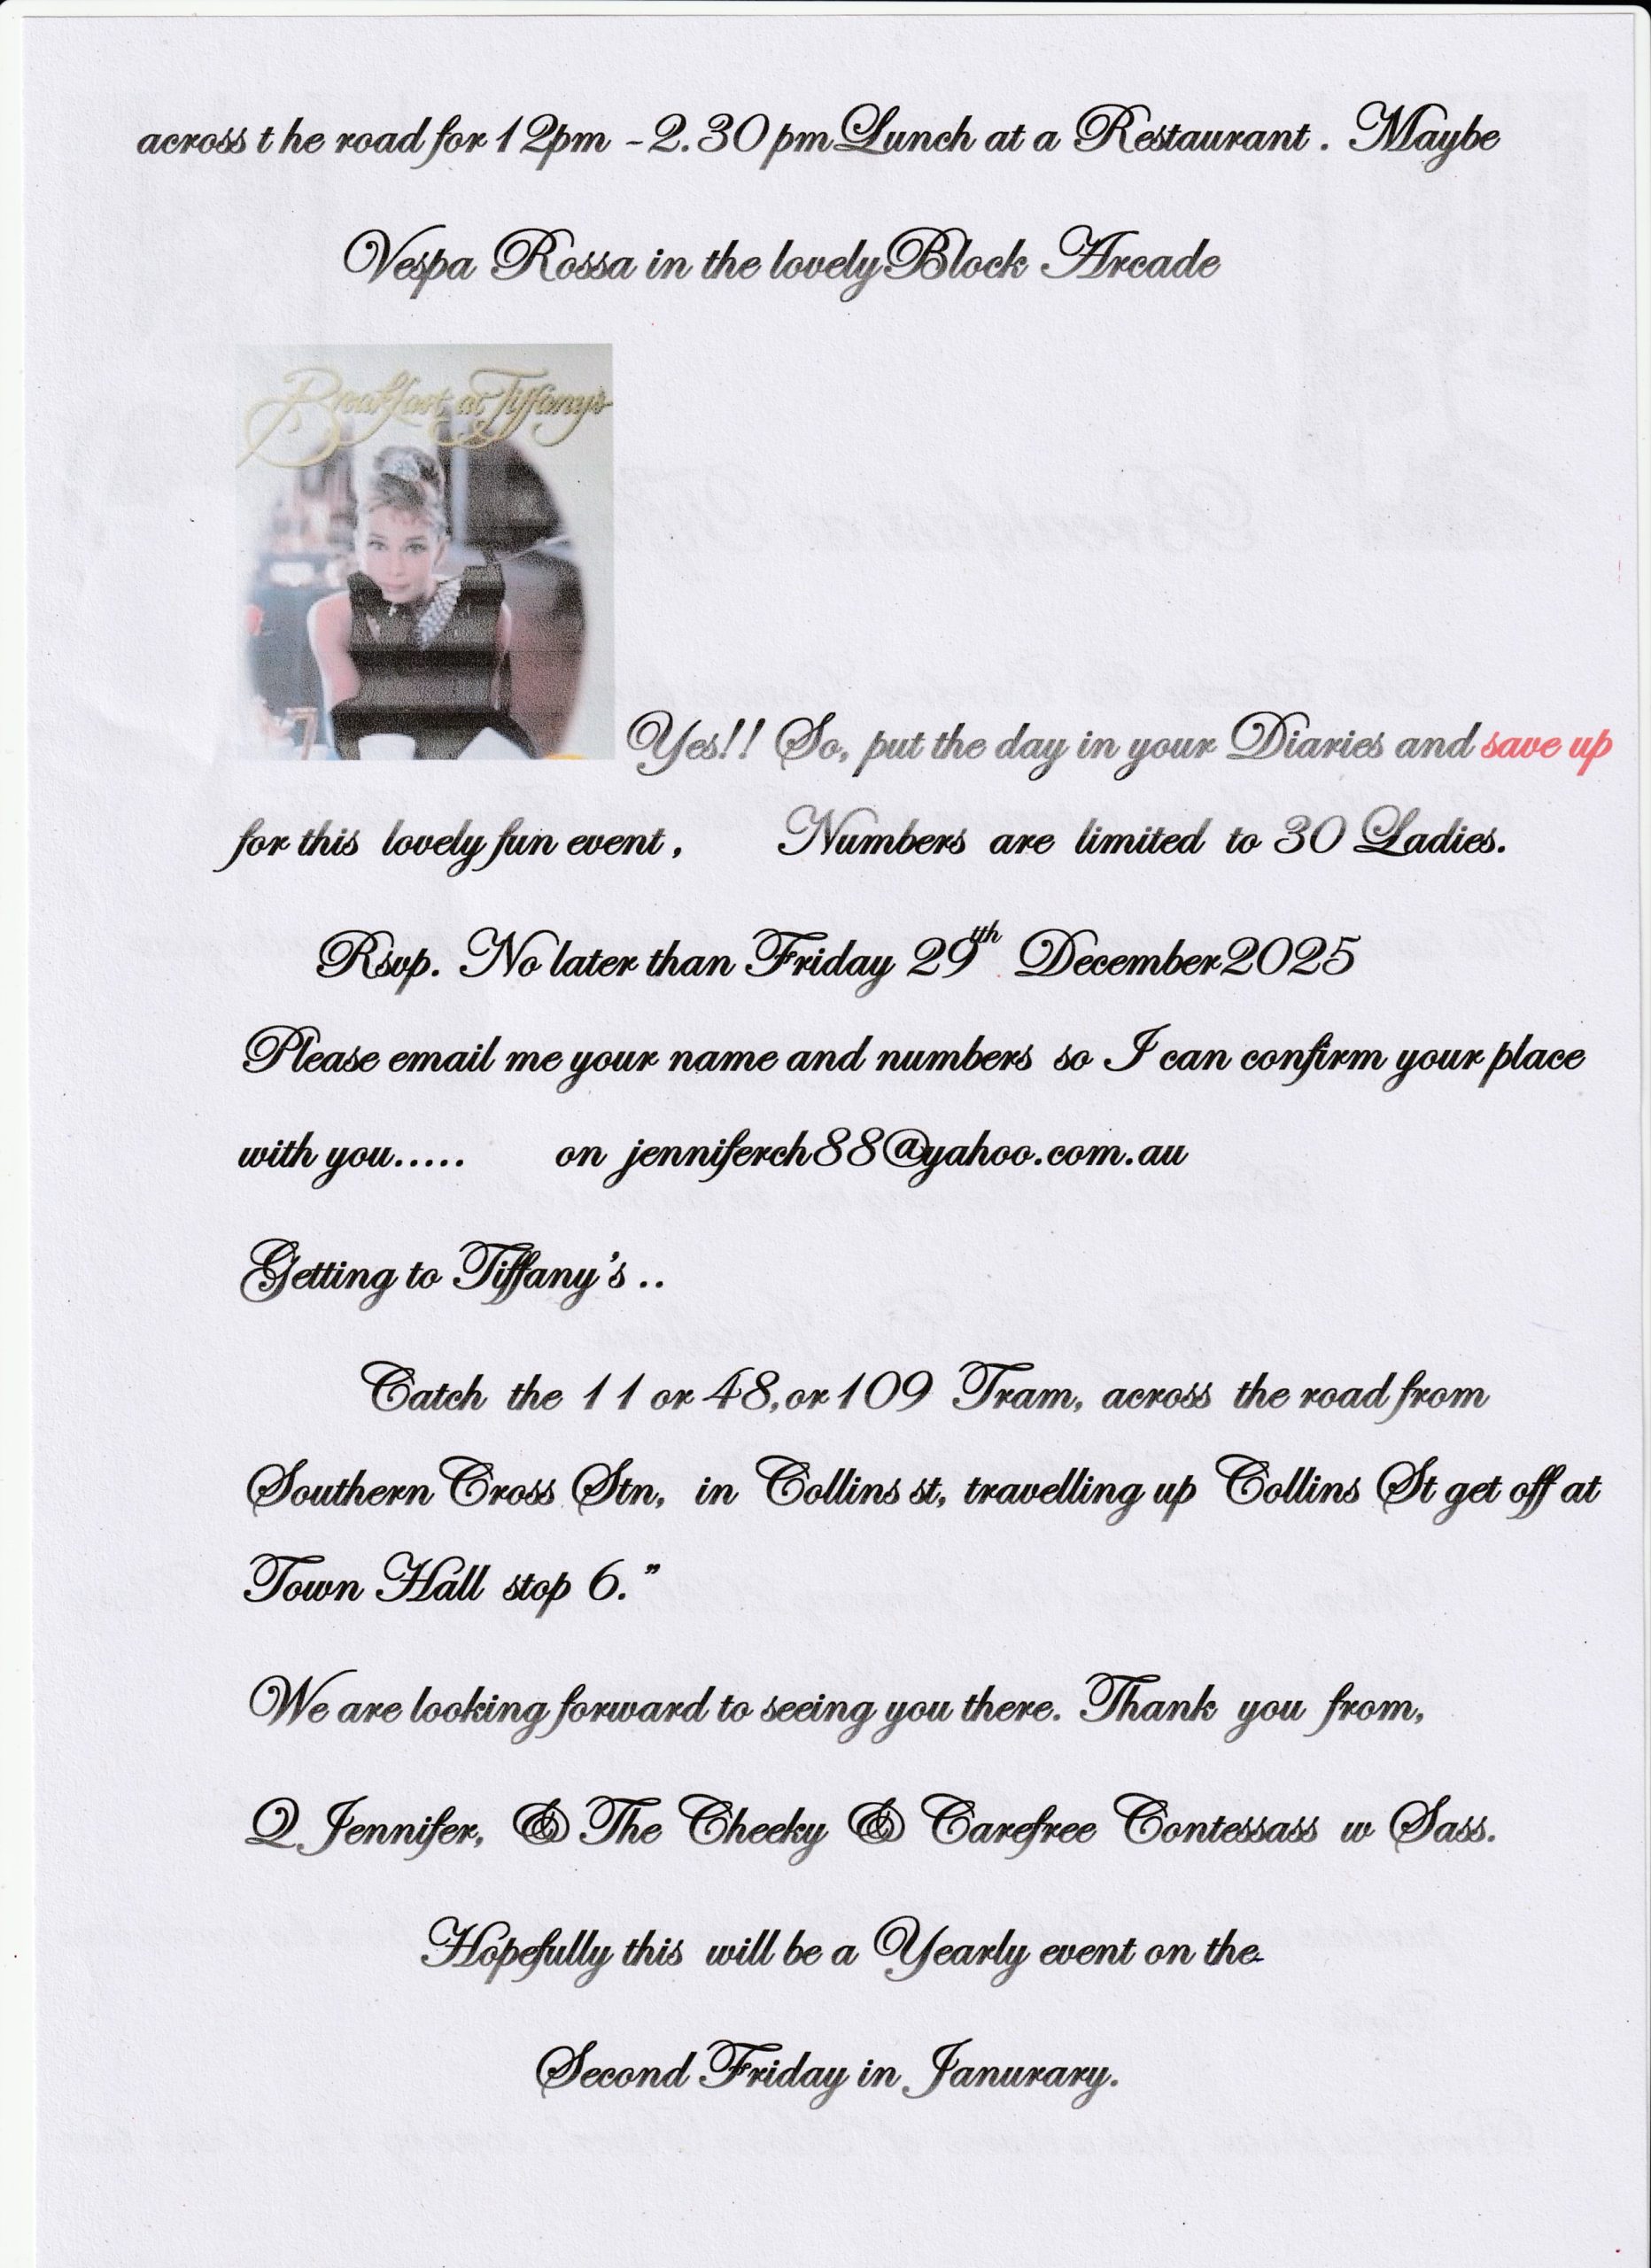 across t he road for 12pm - 2.30 pm Lunch at a Restaurant . Maybe
Vespa Rossa in the lovely Block Arcade
Breakfast at Tiffany's
Yes!! So, put the day in your Diaries and save up
for this lovely fun event , Numbers are limited to 30 Ladies.
Rsvp. No later than Friday 29th December 2025
Please email me your name and numbers so I can confirm your place
with you..... on jenniferch88@yahoo.com.au
Getting to Tiffany's ..
Catch the 11 or 48, or 109 Tram, across the road from
Southern Cross Stn, in Collins st, travelling up Collins St get off at
Town Hall stop 6.”
We are looking forward to seeing you there. Thank you from,
Q Jennifer, & The Cheeky & Carefree Contessass w Sass.
Hopefully this will be a Yearly event on the
Second Friday in Janurary.